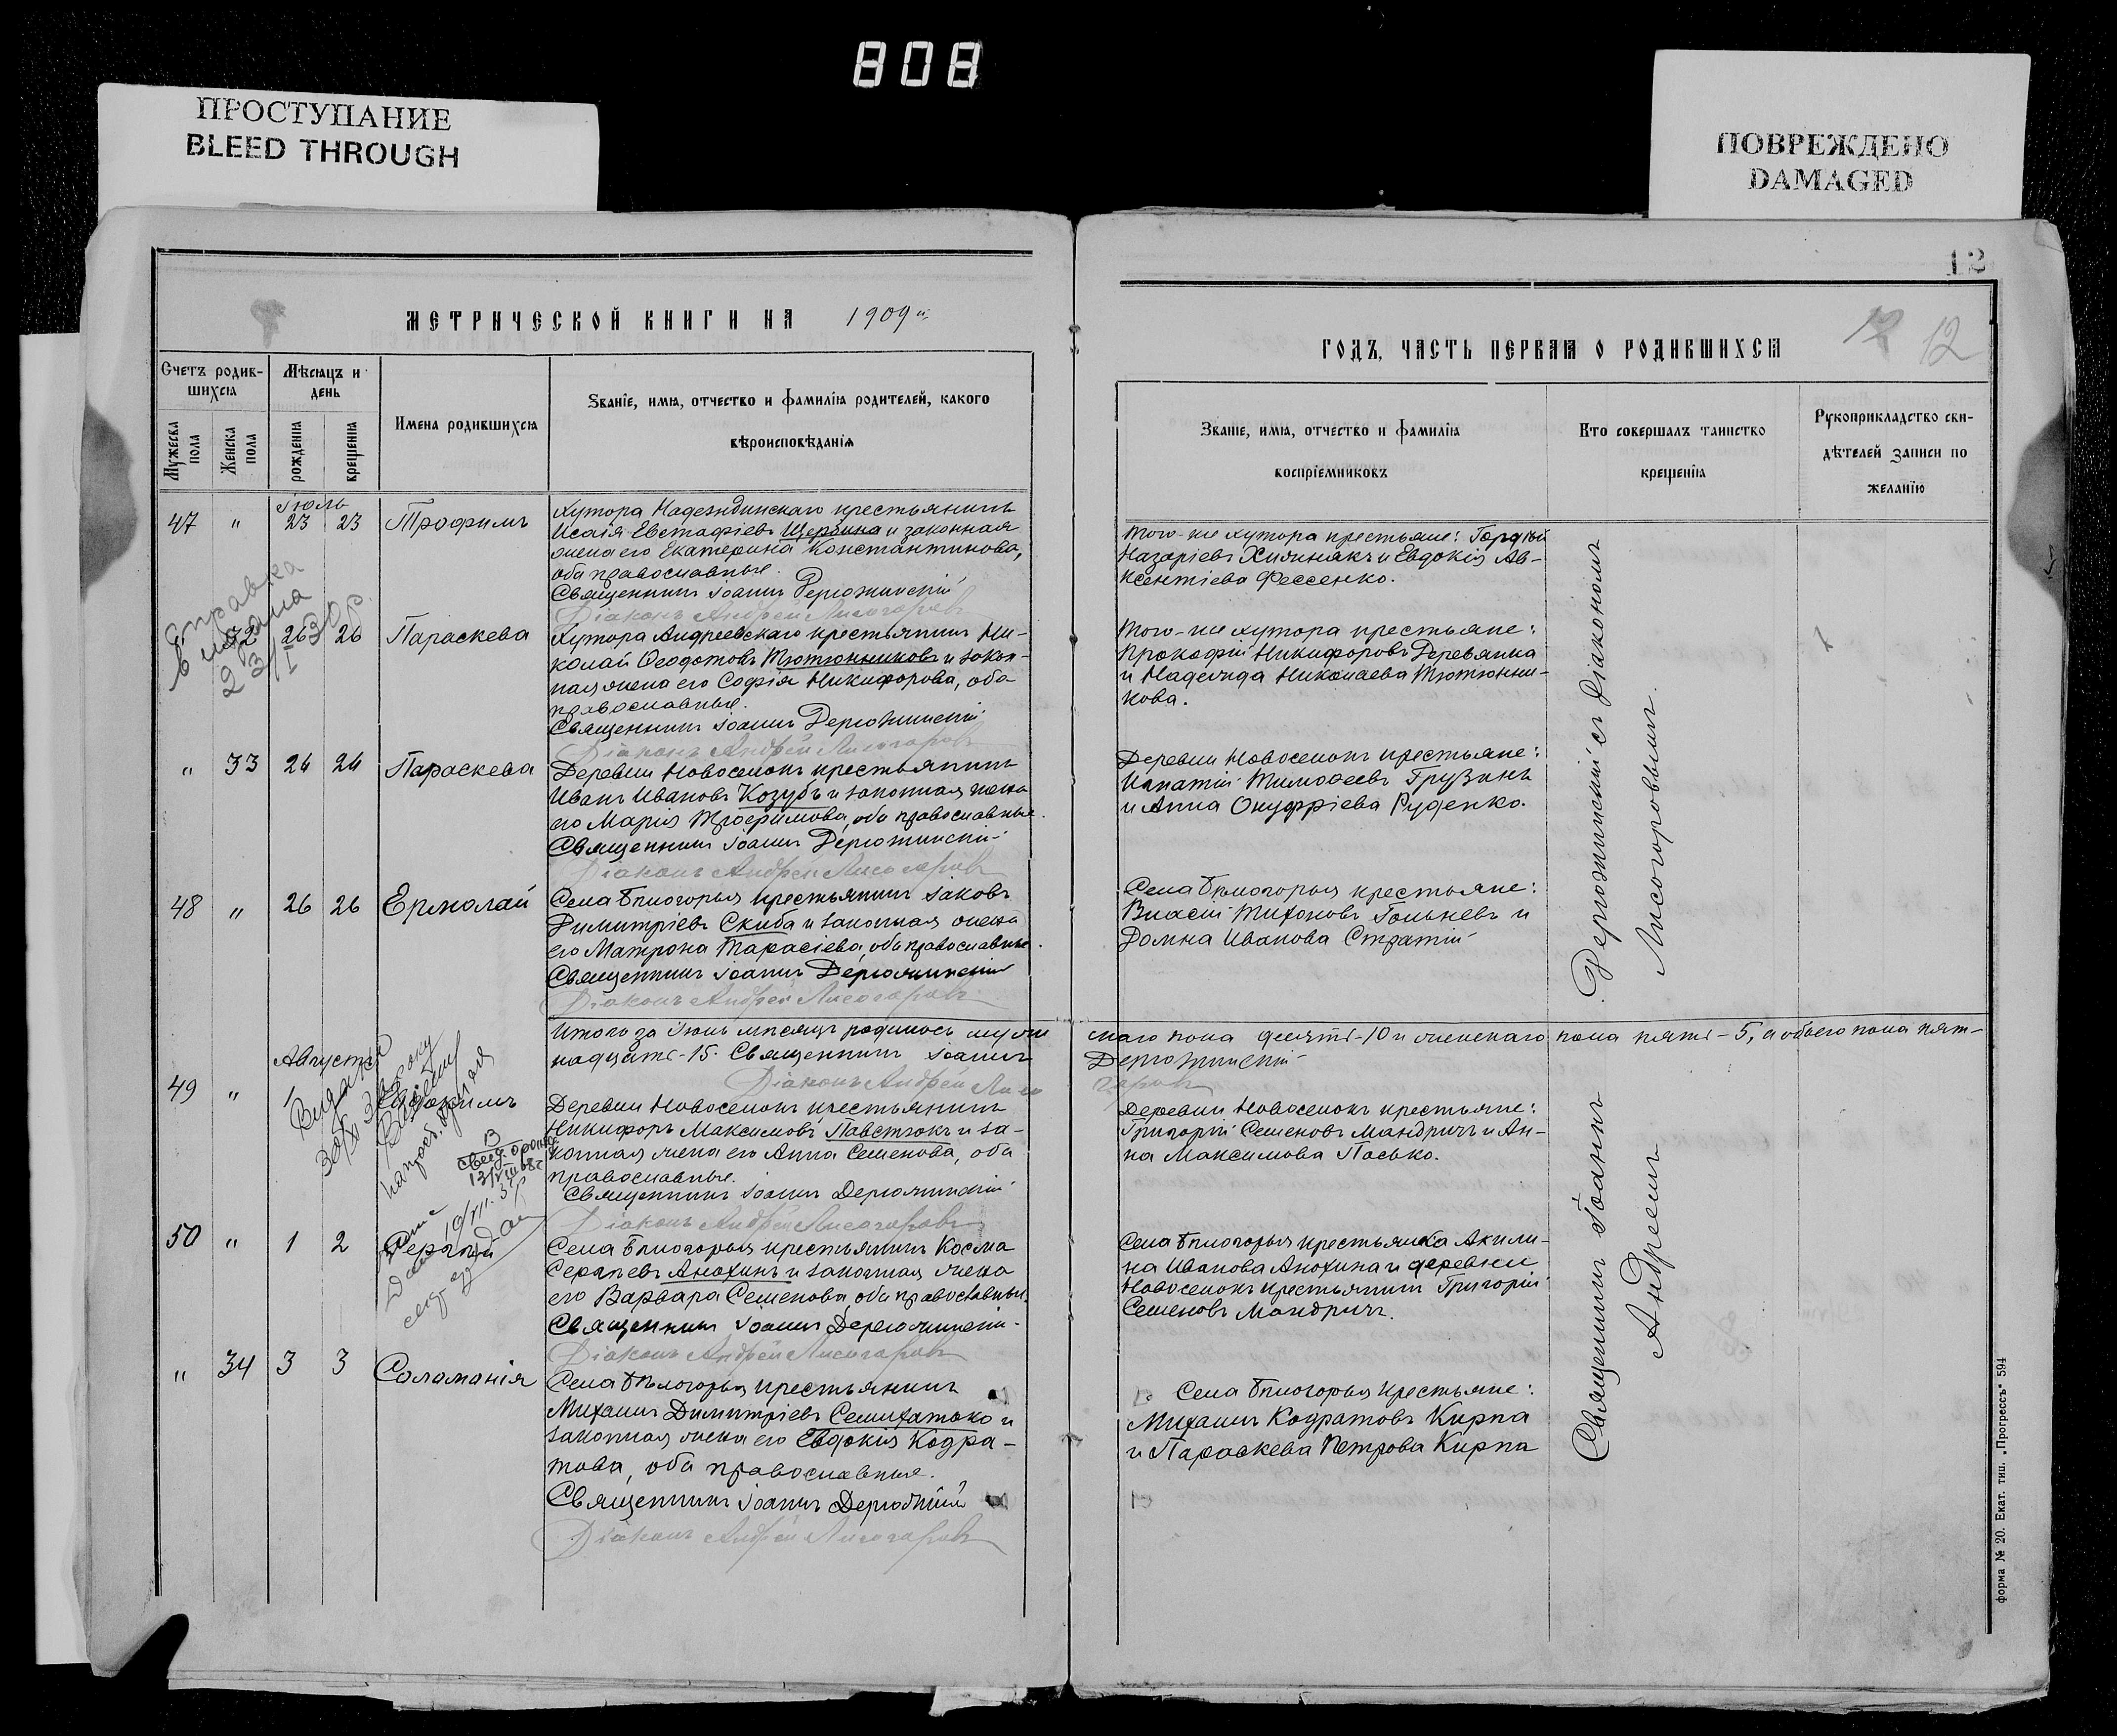 808
ПРОСТУПАНИЕ
BLEED THROUGH
ПОВРЕЖДЕНО
DAMAGED
12
МЕТРИЧЕСКОЙ КНИГИ НА 1909й
Счетъ родив-
шихся
Мѣсяцъ и
день
Мужеска пола
Женска пола
рожденія
крещенія
Имена родившихся
Званіе, имя, отчество и фамилія родителей, какого
вѣроисповѣданія
Іюль
47 " 23 23 Трофимъ
Хутора Надеждинскаго крестьянинъ
Исаія Евстафіевъ Щербина и законная
жена его Екатерина Константинова,
оба православные.
Священникъ Іоаннъ Дерюжинскій
Діаконъ Андрей Лисогоровъ
Справка
выдана
23/I 30 г.
" 32 26 26 Параскева
Хутора Андреевскаго крестьянинъ Ни-
колай Ѳеодотовъ Тютюнниковъ и закон-
ная жена его Софія Никифорова, оба
православные.
Священникъ Іоаннъ Дерюжинскій
Діаконъ Андрей Лисогоровъ
" 33 24 24 Параскева
Деревни Новоселокъ крестьянинъ
Иванъ Ивановъ Козубъ и законная жена
его Марія Трофимова, оба православные.
Священникъ Іоаннъ Дерюжинскій
Діаконъ Андрей Лисогоровъ
48 " 26 26 Ермолай
Села Бѣлогорья крестьянинъ Іаковъ
Димитріевъ Скиба и законная жена
его Матрона Тарасіева, оба православные.
Священникъ Іоаннъ Дерюжинскій
Діаконъ Андрей Лисогоровъ
Итого за Іюль мѣсяцъ родилось муже
надцать-15. Священникъ Іоаннъ
Діаконъ Андрей Лисо
Августъ
49 " 1 Евдокимъ
Деревни Новоселокъ крестьянинъ
Никифоръ Максимовъ Павстюкъ и за-
конная жена его Анна Семенова, оба
православные.
Священникъ Іоаннъ Дерюжинскій
Діаконъ Андрей Лисогоровъ
50 " 1 2 Сергій
Села Бѣлогорья крестьянинъ Косма
Сергіевъ Анохинъ и законная жена
его Варвара Семенова, оба православные.
Священникъ Іоаннъ Дерюжинскій
Діаконъ Андрей Лисогоровъ
" 34 3 3 Саламанія
Села Бѣлогорья крестьянинъ
Михаилъ Димитріевъ Семихатько и
законная жена его Евдокія Кодра-
това, оба православные.
Священникъ Іоаннъ Дерюжинскій
Діаконъ Андрей Лисогоровъ
12 12
ГОДЪ, ЧАСТЬ ПЕРВАЯ О РОДИВШИХСЯ
Званіе, имя, отчество и фамилія
воспріемниковъ
Кто совершалъ таинство
крещенія
Рукоприкладство сви-
дѣтелей записи по
желанію
Того-же хутора крестьяне: Гордій
Назаріевъ Хижнякъ и Евдокія Ав-
ксентіева Фессенко.
Того-же хутора крестьяне:
Прокофій Никифоровъ Деревянка
и Надежда Николаева Тютюнни-
кова.
Деревни Новоселокъ крестьяне:
Игнатій Тимоѳеевъ Грузинъ
и Анна Онуфріева Руденко.
Села Бѣлогорья крестьяне:
Власій Тихоновъ Голыневъ и
Домна Иванова Стратій
скаго пола десять-10 и женскаго пола пять-5, а обоего пола пят-
Дерюжинскій
горовъ
Деревни Новоселокъ крестьяне:
Григорій Семеновъ Мандричъ и Ан-
на Максимова Пасько.
Села Бѣлогорья крестьянка Акили-
на Иванова Анохина и деревни
Новоселокъ крестьянинъ Григорій
Семеновъ Мандричъ.
Села Бѣлогорья крестьяне:
Михаилъ Кодратовъ Кирпа
и Параскева Петрова Кирпа
Священникъ Іоаннъ Дерюжинскій съ Діакономъ
Андреемъ Лисогоровымъ.
форма № 20. Екат. тип. „Прогрессъ" 594